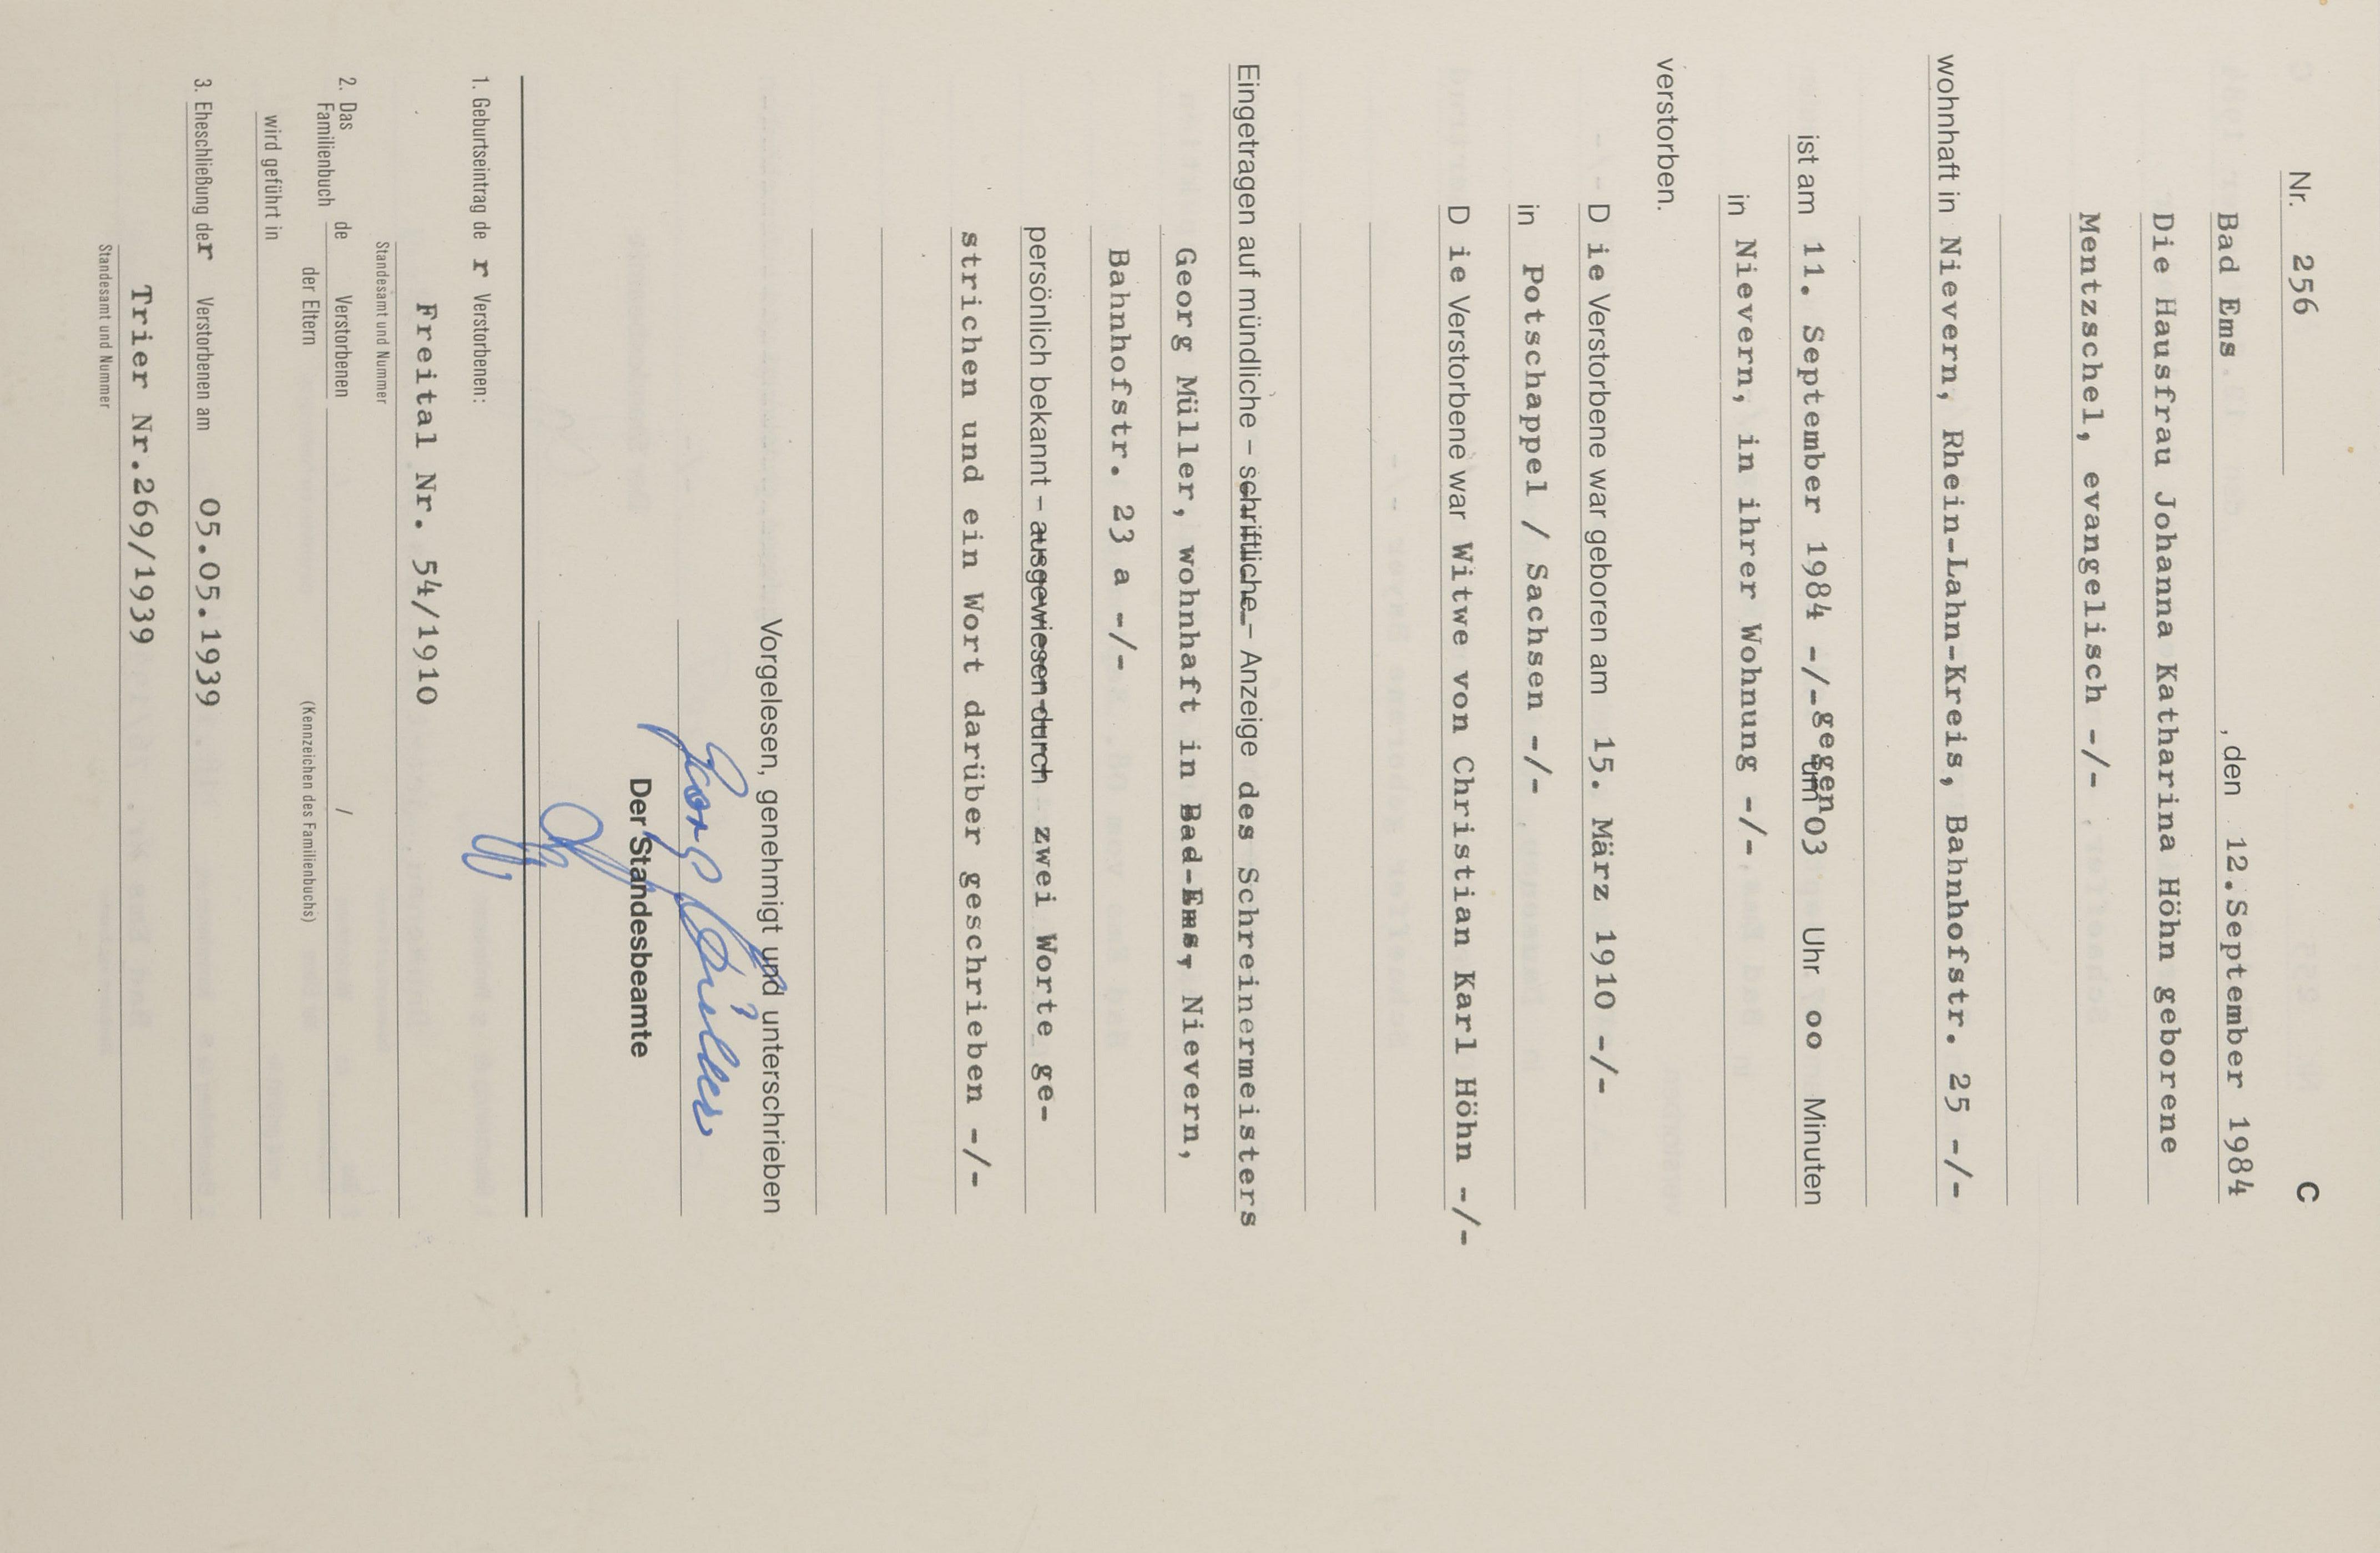 Nr. 256 C
Bad Ems , den 12.September 1984
Die Hausfrau Johanna Katharina Höhn geborene
Mentzschel, evangelisch -/-
wohnhaft in Nievern, Rhein-Lahn-Kreis, Bahnhofstr. 25 -/-
gegen
ist am 11. September 1984 -/- um 03 Uhr oo Minuten
in Nievern, in ihrer Wohnung -/-
verstorben.
D ie Verstorbene war geboren am 15. März 1910 -/-
in Potschappel / Sachsen -/-
D ie Verstorbene war Witwe von Christian Karl Höhn -/-
Eingetragen auf mündliche – schriftliche – Anzeige des Schreinermeisters
Georg Müller, wohnhaft in Bad-Ems, Nievern,
Bahnhofstr. 23 a -/-
persönlich bekannt – ausgewiesen durch zwei Worte ge-
strichen und ein Wort darüber geschrieben -/-
Vorgelesen, genehmigt und unterschrieben
Georg Müller
Der Standesbeamte
1. Geburtseintrag de r Verstorbenen:
Freital Nr. 54/1910
Standesamt und Nummer
2. Das Familienbuch de Verstorbenen /
der Eltern (Kennzeichen des Familienbuchs)
wird geführt in
3. Eheschließung der Verstorbenen am 05.05.1939
Trier Nr.269/1939
Standesamt und Nummer